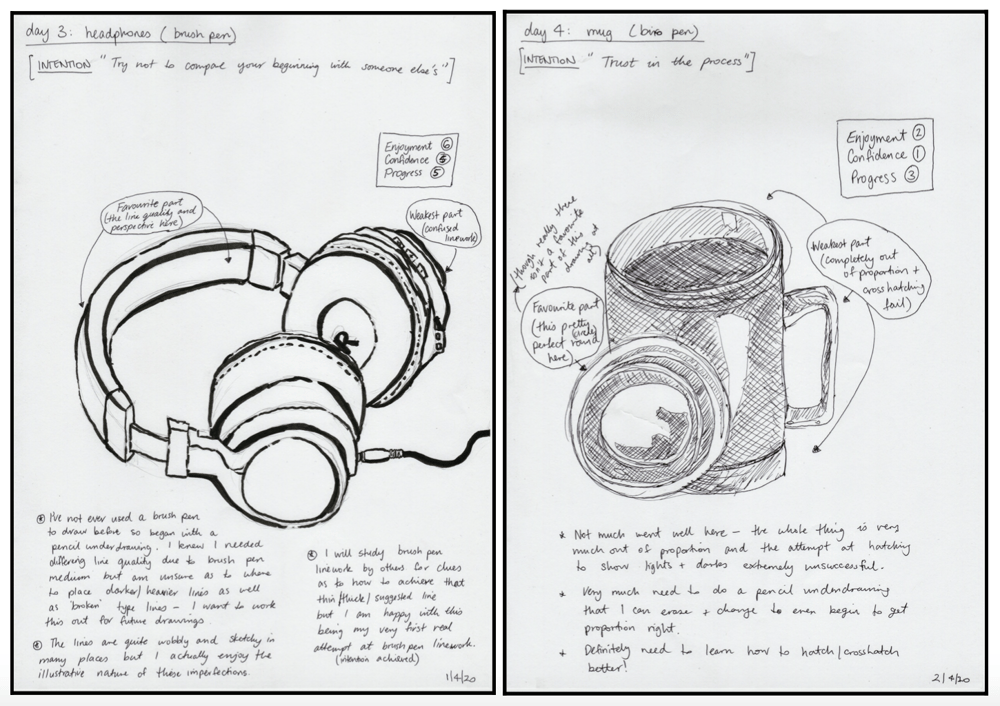 day 3: headphones (brush pen)
[INTENTION "Try not to compare your beginning with someone else's"]
Enjoyment 6
Confidence 5
Progress 5
Favourite part
(the line quality and
perspective here)
Weakest part
(confused
linework)
* I've not ever used a brush pen
to draw before so began with a
pencil underdrawing. I knew I needed
differing line quality due to brush pen
medium but am unsure as to where
to place darker/heavier lines as well
as 'broken' type lines – I want to work
this out for future drawings.
* The lines are quite wobbly and sketchy in
many places but I actually enjoy the
illustrative nature of these imperfections.
* I will study brush pen
linework by others for clues
as to how to achieve that
thin/thick/suggested line
but I am happy with this
being my very first real
attempt at brushpen linework.
(intention achieved)
1/4/20
day 4: mug (biro pen)
[INTENTION "Trust in the process"]
Enjoyment 2
Confidence 1
Progress 3
(though really there
isn't a favourite
part of this
drawing at
all)
Favourite part
(this pretty
perfect round circle
here)
Weakest part
(completely out
of proportion +
crosshatching
fail)
* Not much went well here – the whole thing is very
much out of proportion and the attempt at hatching
to show lights + darks extremely unsuccessful.
* Very much need to do a pencil underdrawing
that I can erase + change to even begin to get
proportion right.
* Definitely need to learn how to hatch/crosshatch
better!
2/4/20